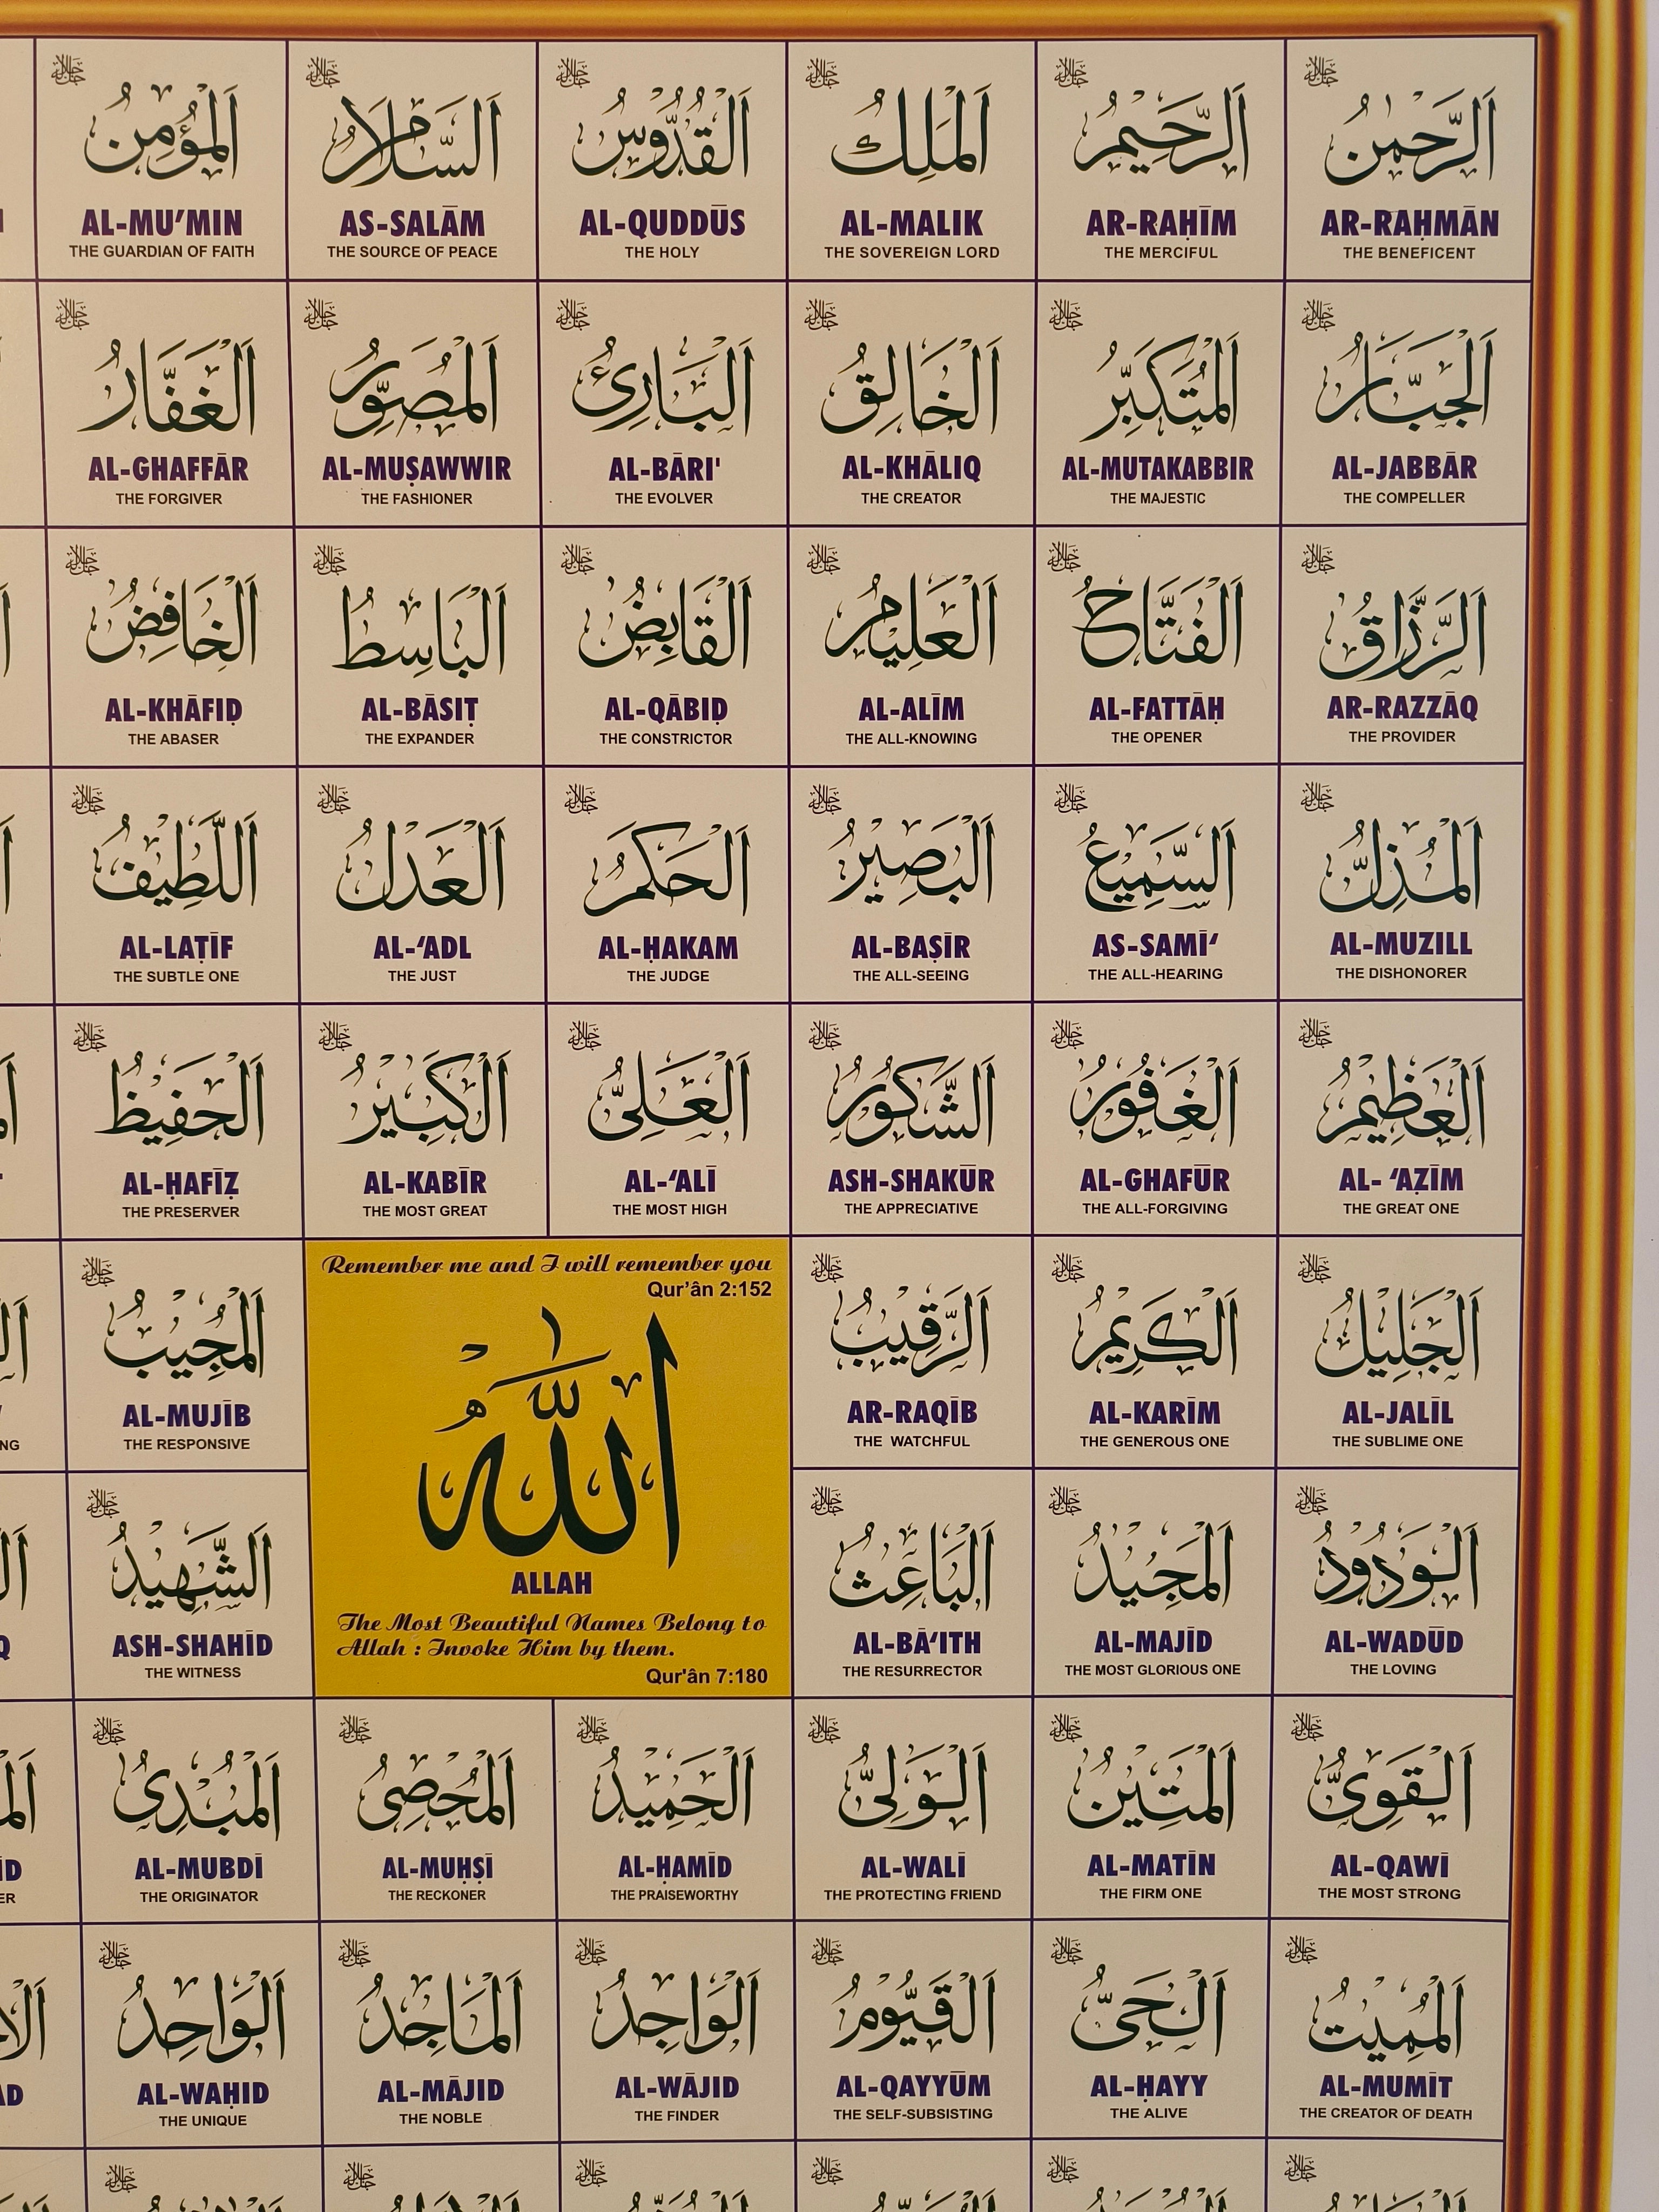 جل جلاله
اَلرَّحْمٰنُ
AR-RAḤMĀN
THE BENEFICENT
جل جلاله
اَلرَّحِيْمُ
AR-RAḤĪM
THE MERCIFUL
جل جلاله
اَلْمَلِكُ
AL-MALIK
THE SOVEREIGN LORD
جل جلاله
اَلْقُدُّوْسُ
AL-QUDDŪS
THE HOLY
جل جلاله
اَلسَّلَامُ
AS-SALĀM
THE SOURCE OF PEACE
جل جلاله
اَلْمُؤْمِنُ
AL-MU’MIN
THE GUARDIAN OF FAITH
جل جلاله
اَلْجَبَّارُ
AL-JABBĀR
THE COMPELLER
جل جلاله
اَلْمُتَكَبِّرُ
AL-MUTAKABBIR
THE MAJESTIC
جل جلاله
اَلْخَالِقُ
AL-KHĀLIQ
THE CREATOR
جل جلاله
اَلْبَارِئُ
AL-BĀRI'
THE EVOLVER
جل جلاله
اَلْمُصَوِّرُ
AL-MUṢAWWIR
THE FASHIONER
جل جلاله
اَلْغَفَّارُ
AL-GHAFFĀR
THE FORGIVER
جل جلاله
اَلرَّزَّاقُ
AR-RAZZĀQ
THE PROVIDER
جل جلاله
اَلْفَتَّاحُ
AL-FATTĀḤ
THE OPENER
جل جلاله
اَلْعَلِيْمُ
AL-ALĪM
THE ALL-KNOWING
جل جلاله
اَلْقَابِضُ
AL-QĀBIḌ
THE CONSTRICTOR
جل جلاله
اَلْبَاسِطُ
AL-BĀSIṬ
THE EXPANDER
جل جلاله
اَلْخَافِضُ
AL-KHĀFIḌ
THE ABASER
جل جلاله
اَلْمُذِلُّ
AL-MUZILL
THE DISHONORER
جل جلاله
اَلسَّمِيْعُ
AS-SAMĪ‘
THE ALL-HEARING
جل جلاله
اَلْبَصِيْرُ
AL-BAṢĪR
THE ALL-SEEING
جل جلاله
اَلْحَكَمُ
AL-ḤAKAM
THE JUDGE
جل جلاله
اَلْعَدْلُ
AL-‘ADL
THE JUST
جل جلاله
اَللَّطِيْفُ
AL-LAṬĪF
THE SUBTLE ONE
جل جلاله
اَلْعَظِيْمُ
AL- ‘AẒĪM
THE GREAT ONE
جل جلاله
اَلْغَفُوْرُ
AL-GHAFŪR
THE ALL-FORGIVING
جل جلاله
اَلشَّكُوْرُ
ASH-SHAKŪR
THE APPRECIATIVE
جل جلاله
اَلْعَلِىُّ
AL-‘ALĪ
THE MOST HIGH
جل جلاله
اَلْكَبِيْرُ
AL-KABĪR
THE MOST GREAT
جل جلاله
اَلْحَفِيْظُ
AL-ḤAFĪẒ
THE PRESERVER
جل جلاله
اَلْجَلِيْلُ
AL-JALĪL
THE SUBLIME ONE
جل جلاله
اَلْكَرِيْمُ
AL-KARĪM
THE GENEROUS ONE
جل جلاله
اَلرَّقِيْبُ
AR-RAQĪB
THE WATCHFUL
Remember me and I will remember you
Qur’ân 2:152
اَللّٰهُ
ALLAH
The Most Beautiful Names Belong to
Allah : Invoke Him by them.
Qur'ân 7:180
جل جلاله
اَلْمُجِيْبُ
AL-MUJĪB
THE RESPONSIVE
جل جلاله
اَلْوَدُوْدُ
AL-WADŪD
THE LOVING
جل جلاله
اَلْمَجِيْدُ
AL-MAJĪD
THE MOST GLORIOUS ONE
جل جلاله
اَلْبَاعِثُ
AL-BĀ‘ITH
THE RESURRECTOR
جل جلاله
اَلشَّهِيْدُ
ASH-SHAHĪD
THE WITNESS
جل جلاله
اَلْقَوِىُّ
AL-QAWĪ
THE MOST STRONG
جل جلاله
اَلْمَتِيْنُ
AL-MATĪN
THE FIRM ONE
جل جلاله
اَلْوَلِىُّ
AL-WALĪ
THE PROTECTING FRIEND
جل جلاله
اَلْحَمِيْدُ
AL-ḤAMĪD
THE PRAISEWORTHY
جل جلاله
اَلْمُحْصِى
AL-MUḤṢĪ
THE RECKONER
جل جلاله
اَلْمُبْدِئُ
AL-MUBDĪ
THE ORIGINATOR
جل جلاله
اَلْمُمِيْتُ
AL-MUMĪT
THE CREATOR OF DEATH
جل جلاله
اَلْحَىُّ
AL-ḤAYY
THE ALIVE
جل جلاله
اَلْقَيُّوْمُ
AL-QAYYŪM
THE SELF-SUBSISTING
جل جلاله
اَلْوَاجِدُ
AL-WĀJID
THE FINDER
جل جلاله
اَلْمَاجِدُ
AL-MĀJID
THE NOBLE
جل جلاله
اَلْوَاحِدُ
AL-WAḤID
THE UNIQUE
جل جلاله
جل جلاله
جل جلاله
جل جلاله
جل جلاله
جل جلاله